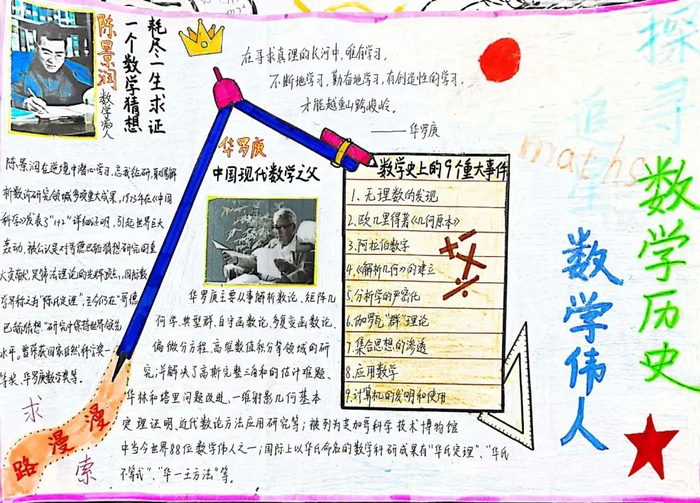 陈景润
数学痴人
耗尽一生求证
一个数学猜想
在寻求真理的长河中,唯有学习,
不断地学习,勤奋地学习,有创造性的学习,
才能越重山跨峻岭。
——华罗庚
陈景润在逆境中潜心学习,忘我钻研,取得解
析数论研究领域多项重大成果,1973年在《中国
科学》发表了"1+2"详细证明,引起世界巨大
轰动,被公认是对哥德巴赫猜想研究的重
大贡献,是筛法理论的光辉顶点,国际数
学界称之为"陈氏定理",至今仍在"哥德
巴赫猜想"研究中保持世界领先
水平。曾荣获国家自然科学奖一
等奖、华罗庚数学奖等。
华罗庚
中国现代数学之父
华罗庚主要从事解析数论、矩阵几
何学、典型群、自守函数论、多复变函数论、
偏微分方程、高维数值积分等领域的研
究;并解决了高斯完整三角和的估计难题、
华林和塔里问题改进、一维射影几何基本
定理证明、近代数论方法应用研究等;被列为芝加哥科学技术博物馆
中当今世界88位数学伟人之一;国际上以华氏命名的数学科研成果有"华氏定理"、"华氏
不等式"、"华—王方法"等。
数学史上的9个重大事件
1.无理数的发现
2.欧几里得著《几何原本》
3.阿拉伯数学
4.《解析几何》的建立
5.分析学的严密化
6.伽罗瓦"群"理论
7.集合思想的渗透
8.应用数学
9.计算机的发明和使用
探寻
数学历史
追星
数学伟人
maths
路漫漫
求索